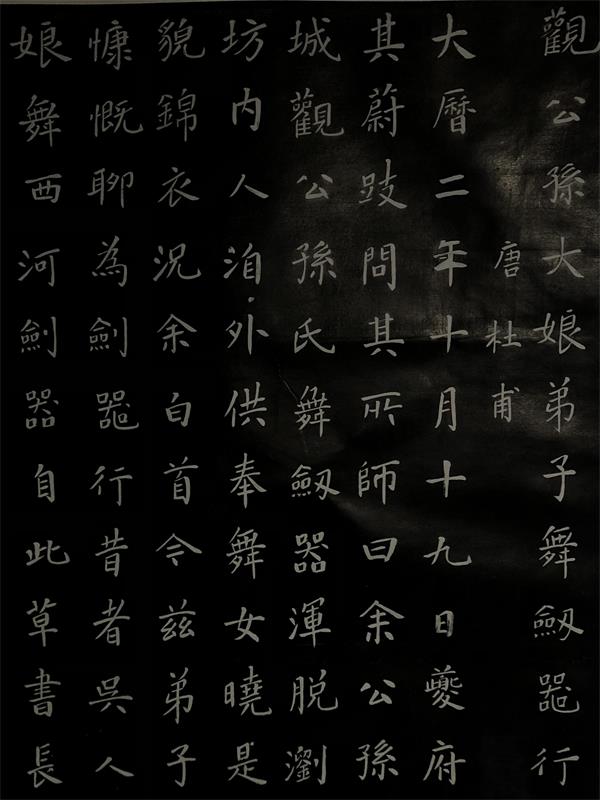 觀公孫大娘弟子舞劒噐行
唐杜甫
大曆二年十月十九日夔府
其蔚跂問其所師曰余公孫
城觀公孫氏舞劒器渾脱瀏
坊内人洎外供奉舞女曉是
貌錦衣況余白首今兹弟子
慷慨聊為劍噐行昔者吳人
娘舞西河劍器自此草書長